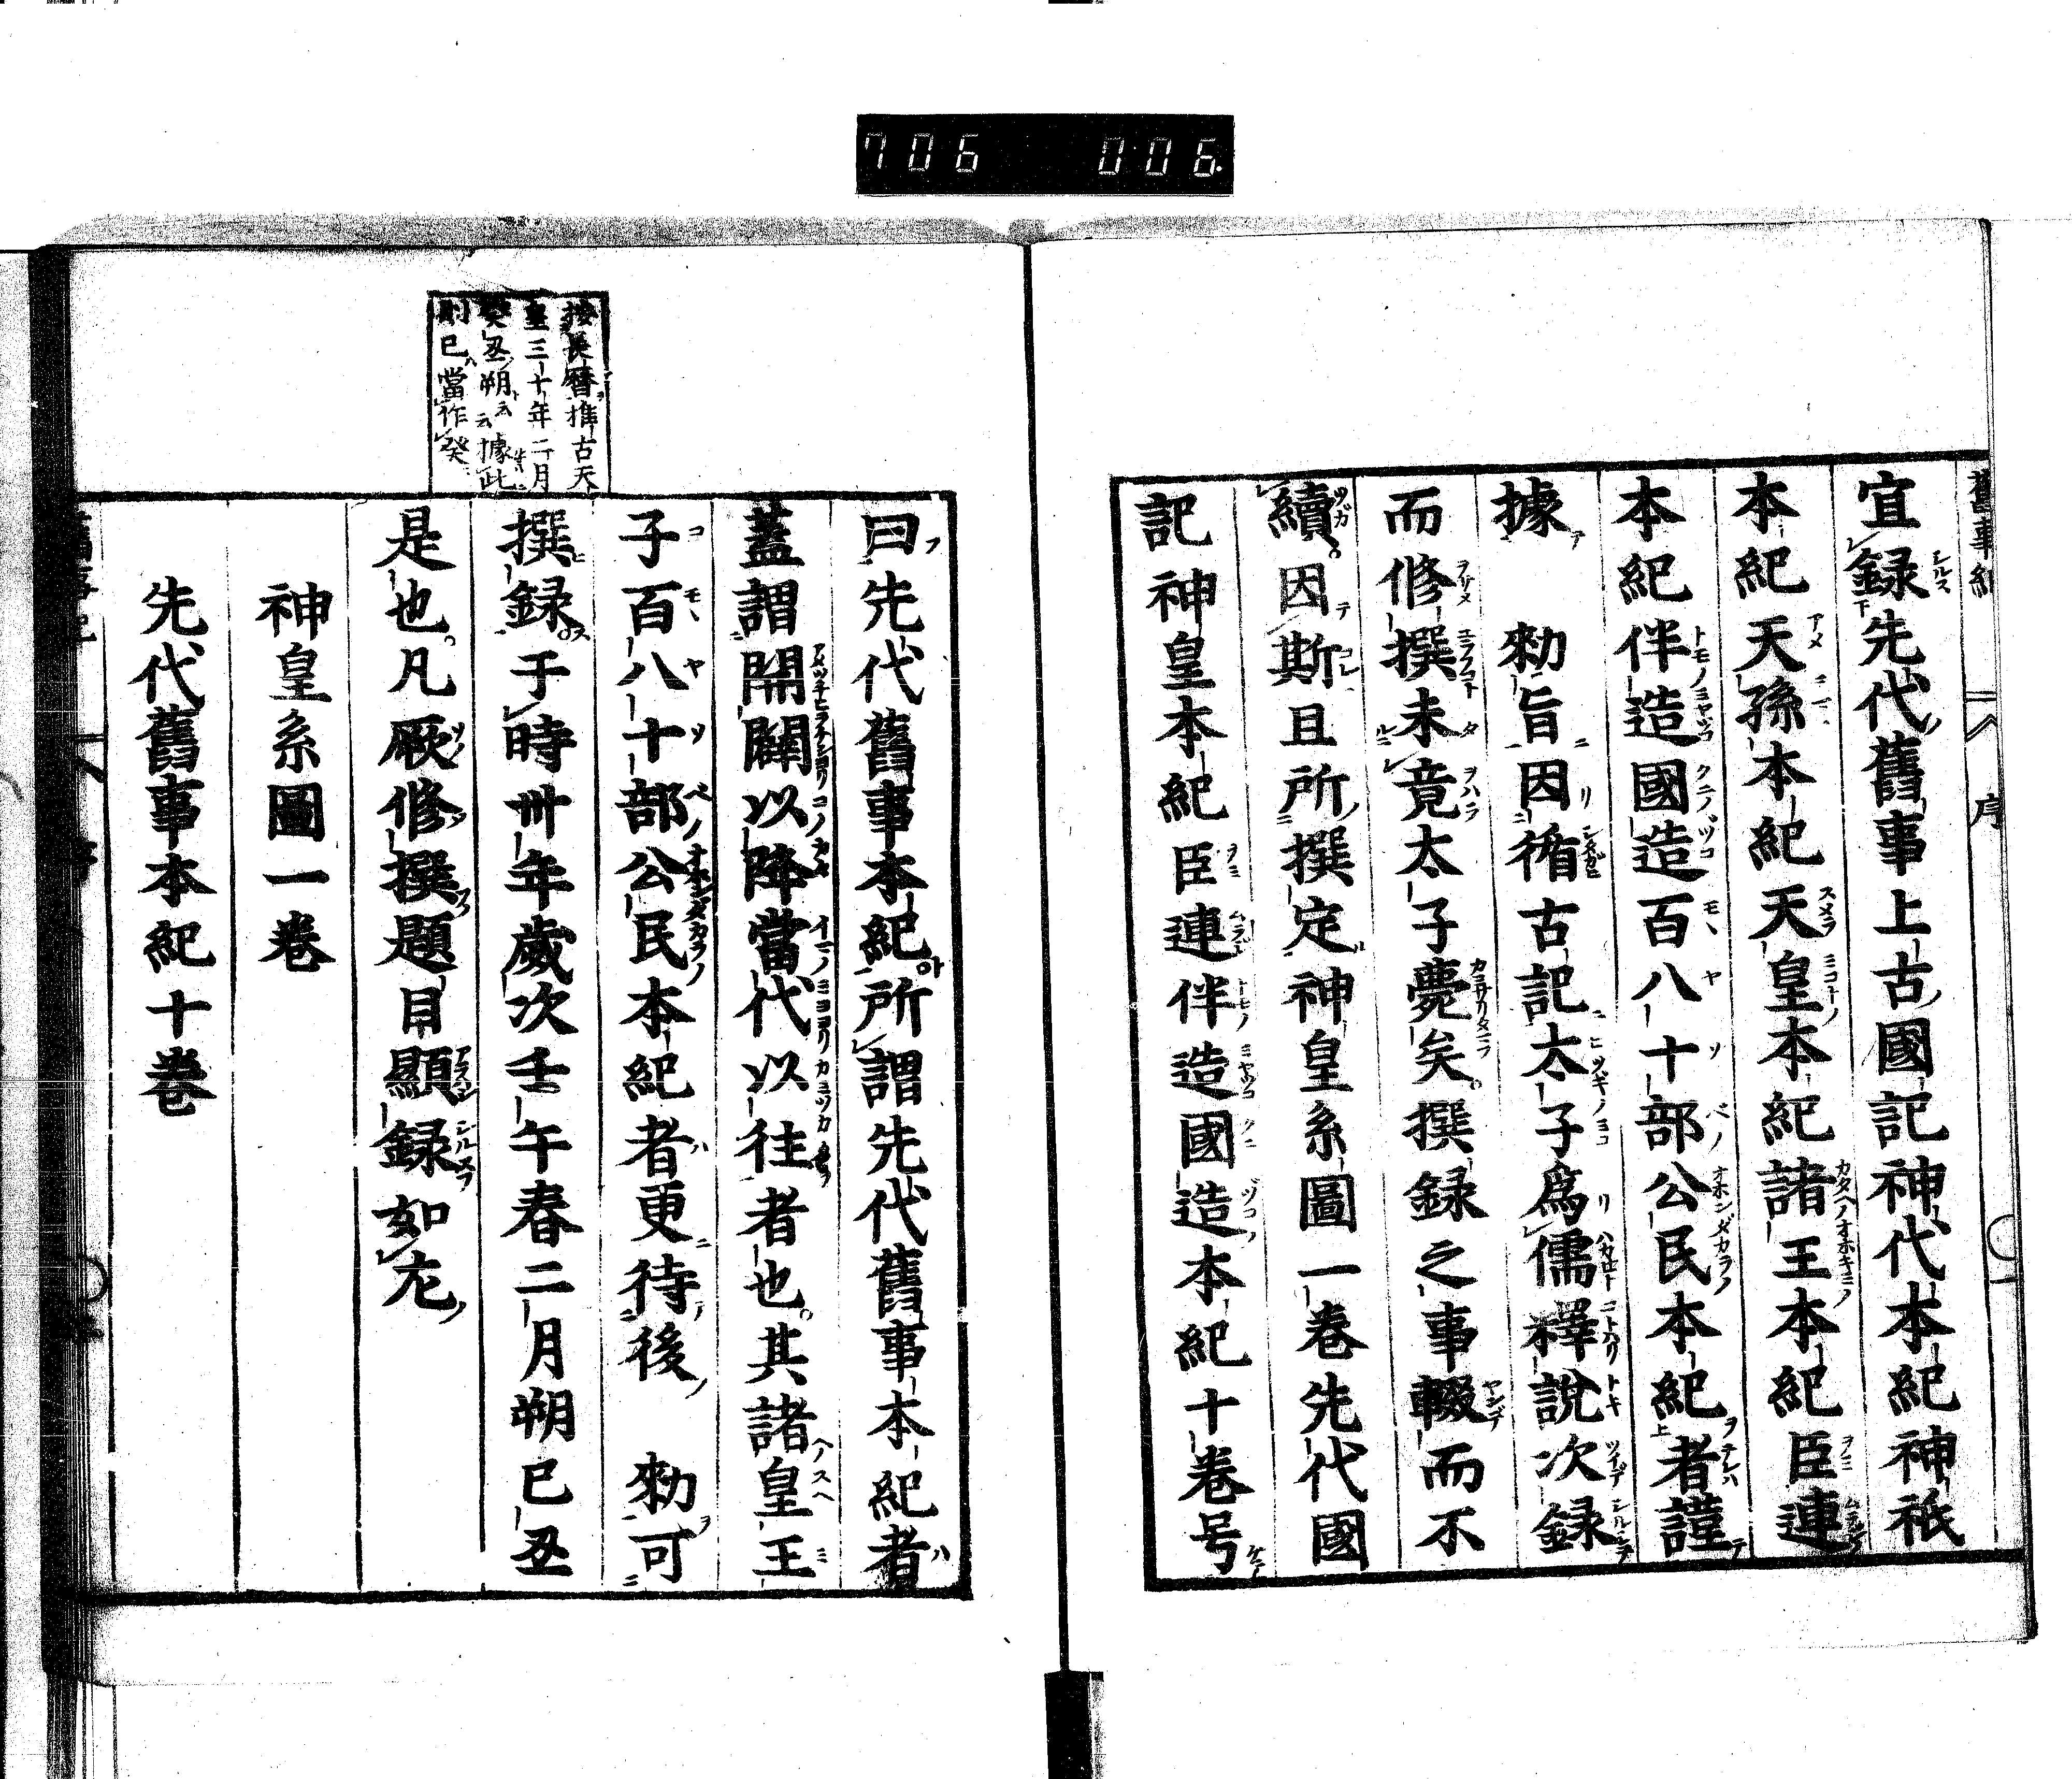 706 006
舊事紀 序
宜録先代舊事上古國記神代本紀神祇
本紀天孫本紀天皇本紀諸王本紀臣連
本紀伴造國造百八十部公民本紀者謹
據 勑旨因循古記太子爲儒釋說次録
而修撰未竟太子薨矣撰録之事輟而不
續因斯且所撰定神皇系圖一卷先代國
記神皇本紀臣連伴造國造本紀十卷号
曰先代舊事本紀所謂先代舊事本紀者
蓋謂開闢以降當代以往者也其諸皇王
子百八十部公民本紀者更待後 勑可
撰録于時卅年歲次壬午春二月朔已丑
是也凡厥修撰題目顯録如左
神皇系圖一卷
先代舊事本紀十卷
按長曆推古天
皇三十年二月
癸丑朔云云據此
則已當作癸